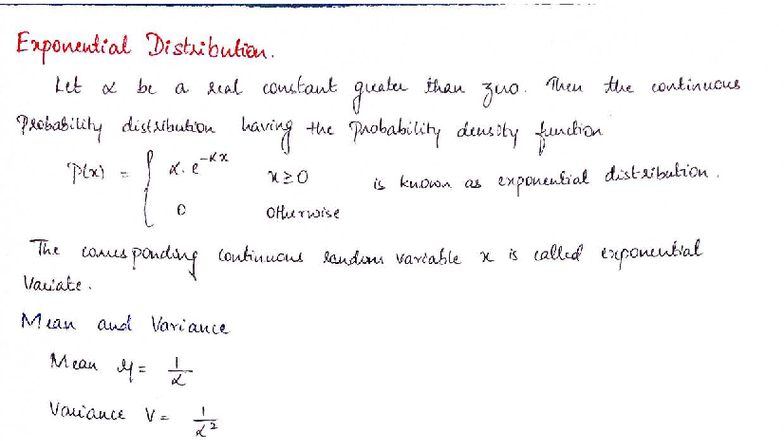 Exponential Distribution.
Let α be a real constant greater than zero. Then the continuous
Probability distribution having the Probability density function
P(x) = { α. e^-αx x ≥ 0 is known as exponential distribution.
0 otherwise
The corresponding continuous random variable x is called exponential
Variate.
Mean and Variance
Mean μ = 1/α
Variance V = 1/α²